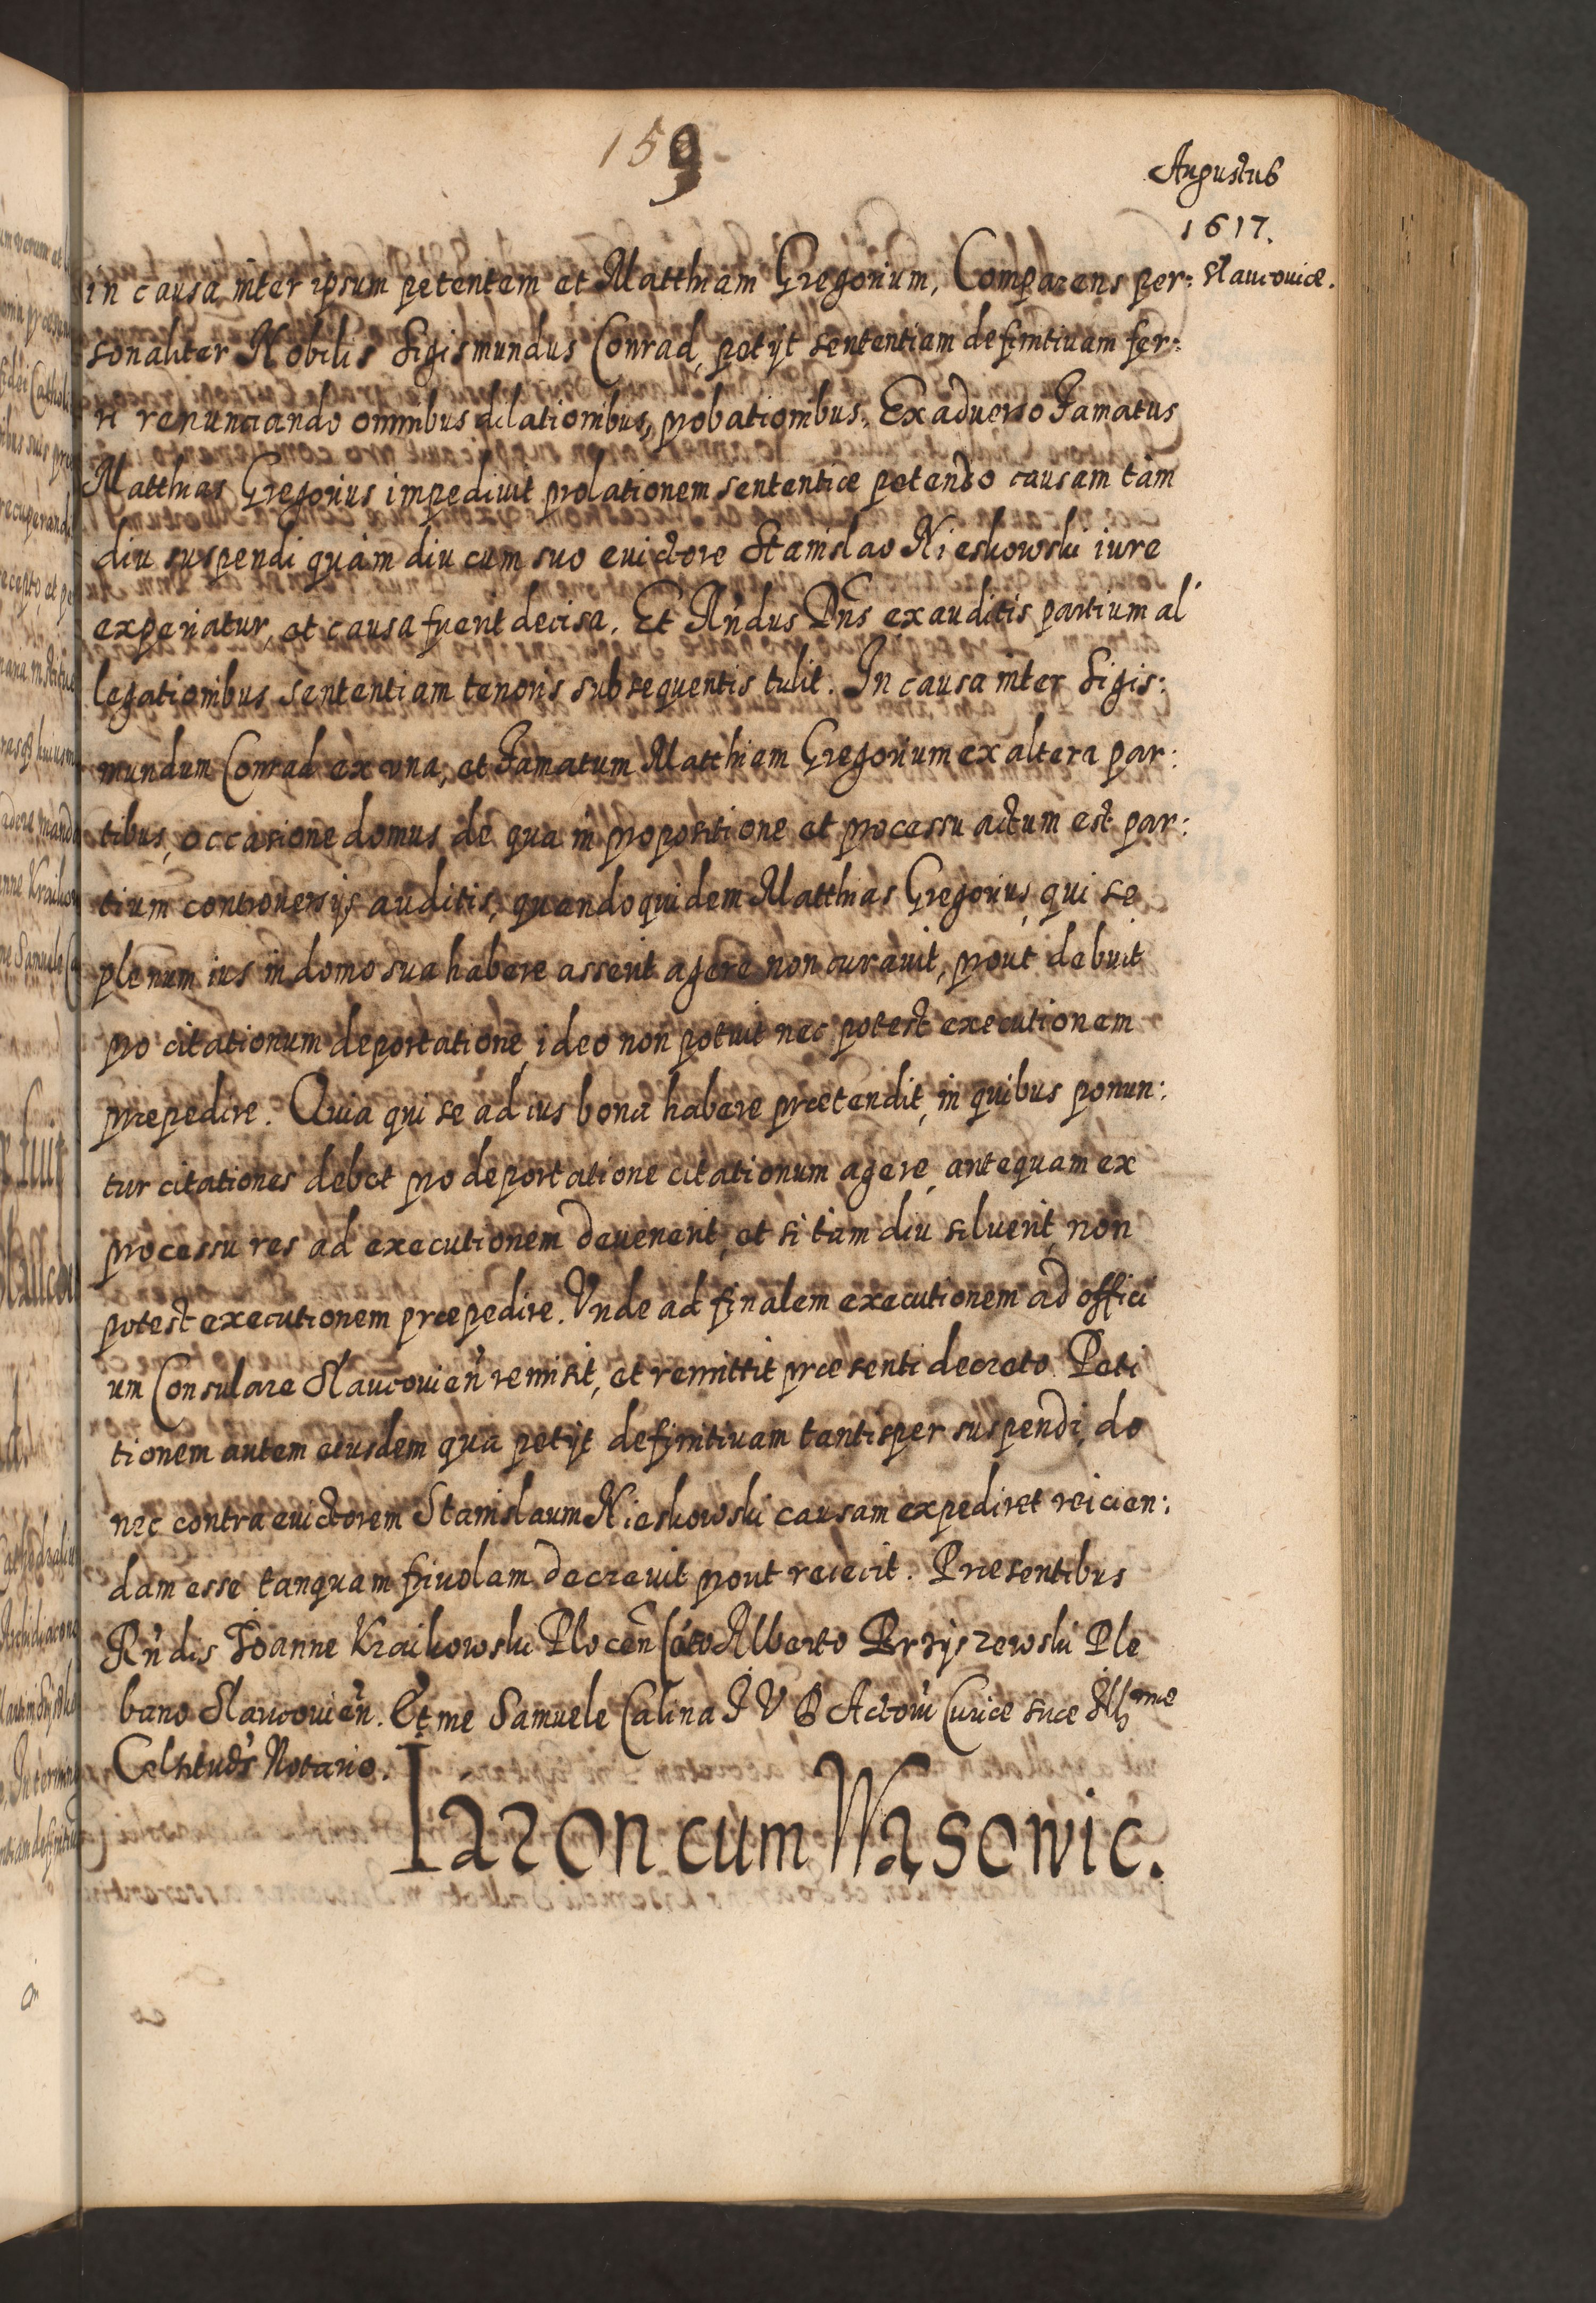 159
Augustus
1617.
Slaucouiæ.
in causa inter ipsum petentem et Matthiam Gregorium, Comparens per:
sonaliter Nobilis Sigismundus Conrad, petijt sententiam definitiuam fer:
ri renunciando omnibus dilationibus, probationibus, Ex aduerso Famatus
Matthias Gregorius impediuit prolationem sententiæ petendo causam tàm
diu suspendi quàm diu cum suo euictore Stanislao Nieskowski iure
experiatur, et causa fuerit decisa. Et Rńdus Dńs exauditis partium al
legationibus sententiam tenoris subsequentis tulit. In causa inter Sigis:
mundum Conrad ex vna, et Famatum Matthiam Gregorium ex altera par:
tibus, occasione domus de qua in propositione et processu actum est par:
tium controuersijs auditis, quandoquidem Matthias Gregorius, qui se
plenum ius in domo sua habere asserit agere non curauit, prout debuit
pro citationum deportatione, ideo non potuit nec potest executionem
præpedire. Quia qui se ad ius bona habere prætendit, in quibus ponun:
tur citationes debet pro deportatione citationum agere, antequam ex
processu res ad executionem deuenerit, et si tàm diu siluerit, non
potest executionem præpedire. Vnde ad finalem executionem ad offici
um Consulare Slaucouień remisit, et remittit præsenti decreto. Peti
tionem autem eiusdem qua petijt definitiuam tantisper suspendi, do
nec contra euictorem Stanislaum Nieskowski causam expediret reicien:
dam esse tanquam friuolam decreuit prout reiecit. Præsentibus
Rńdis Joanne Kraikowski Ploceń Alberto Ple
bano Slaucouień. Et me Samuele Calina I V D Actorú Curiæ suæ Illmæ
Celsitudś Notario.
Iazon cum Wąsowic.